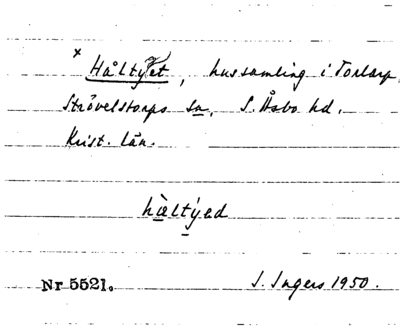 x
Håltyet, hussamling i Torlarp,
Strövelstorps sn, S. Åsbo hd.
Krist. län.
hàltýed
Nr 5521.
I. Ingers 1950.